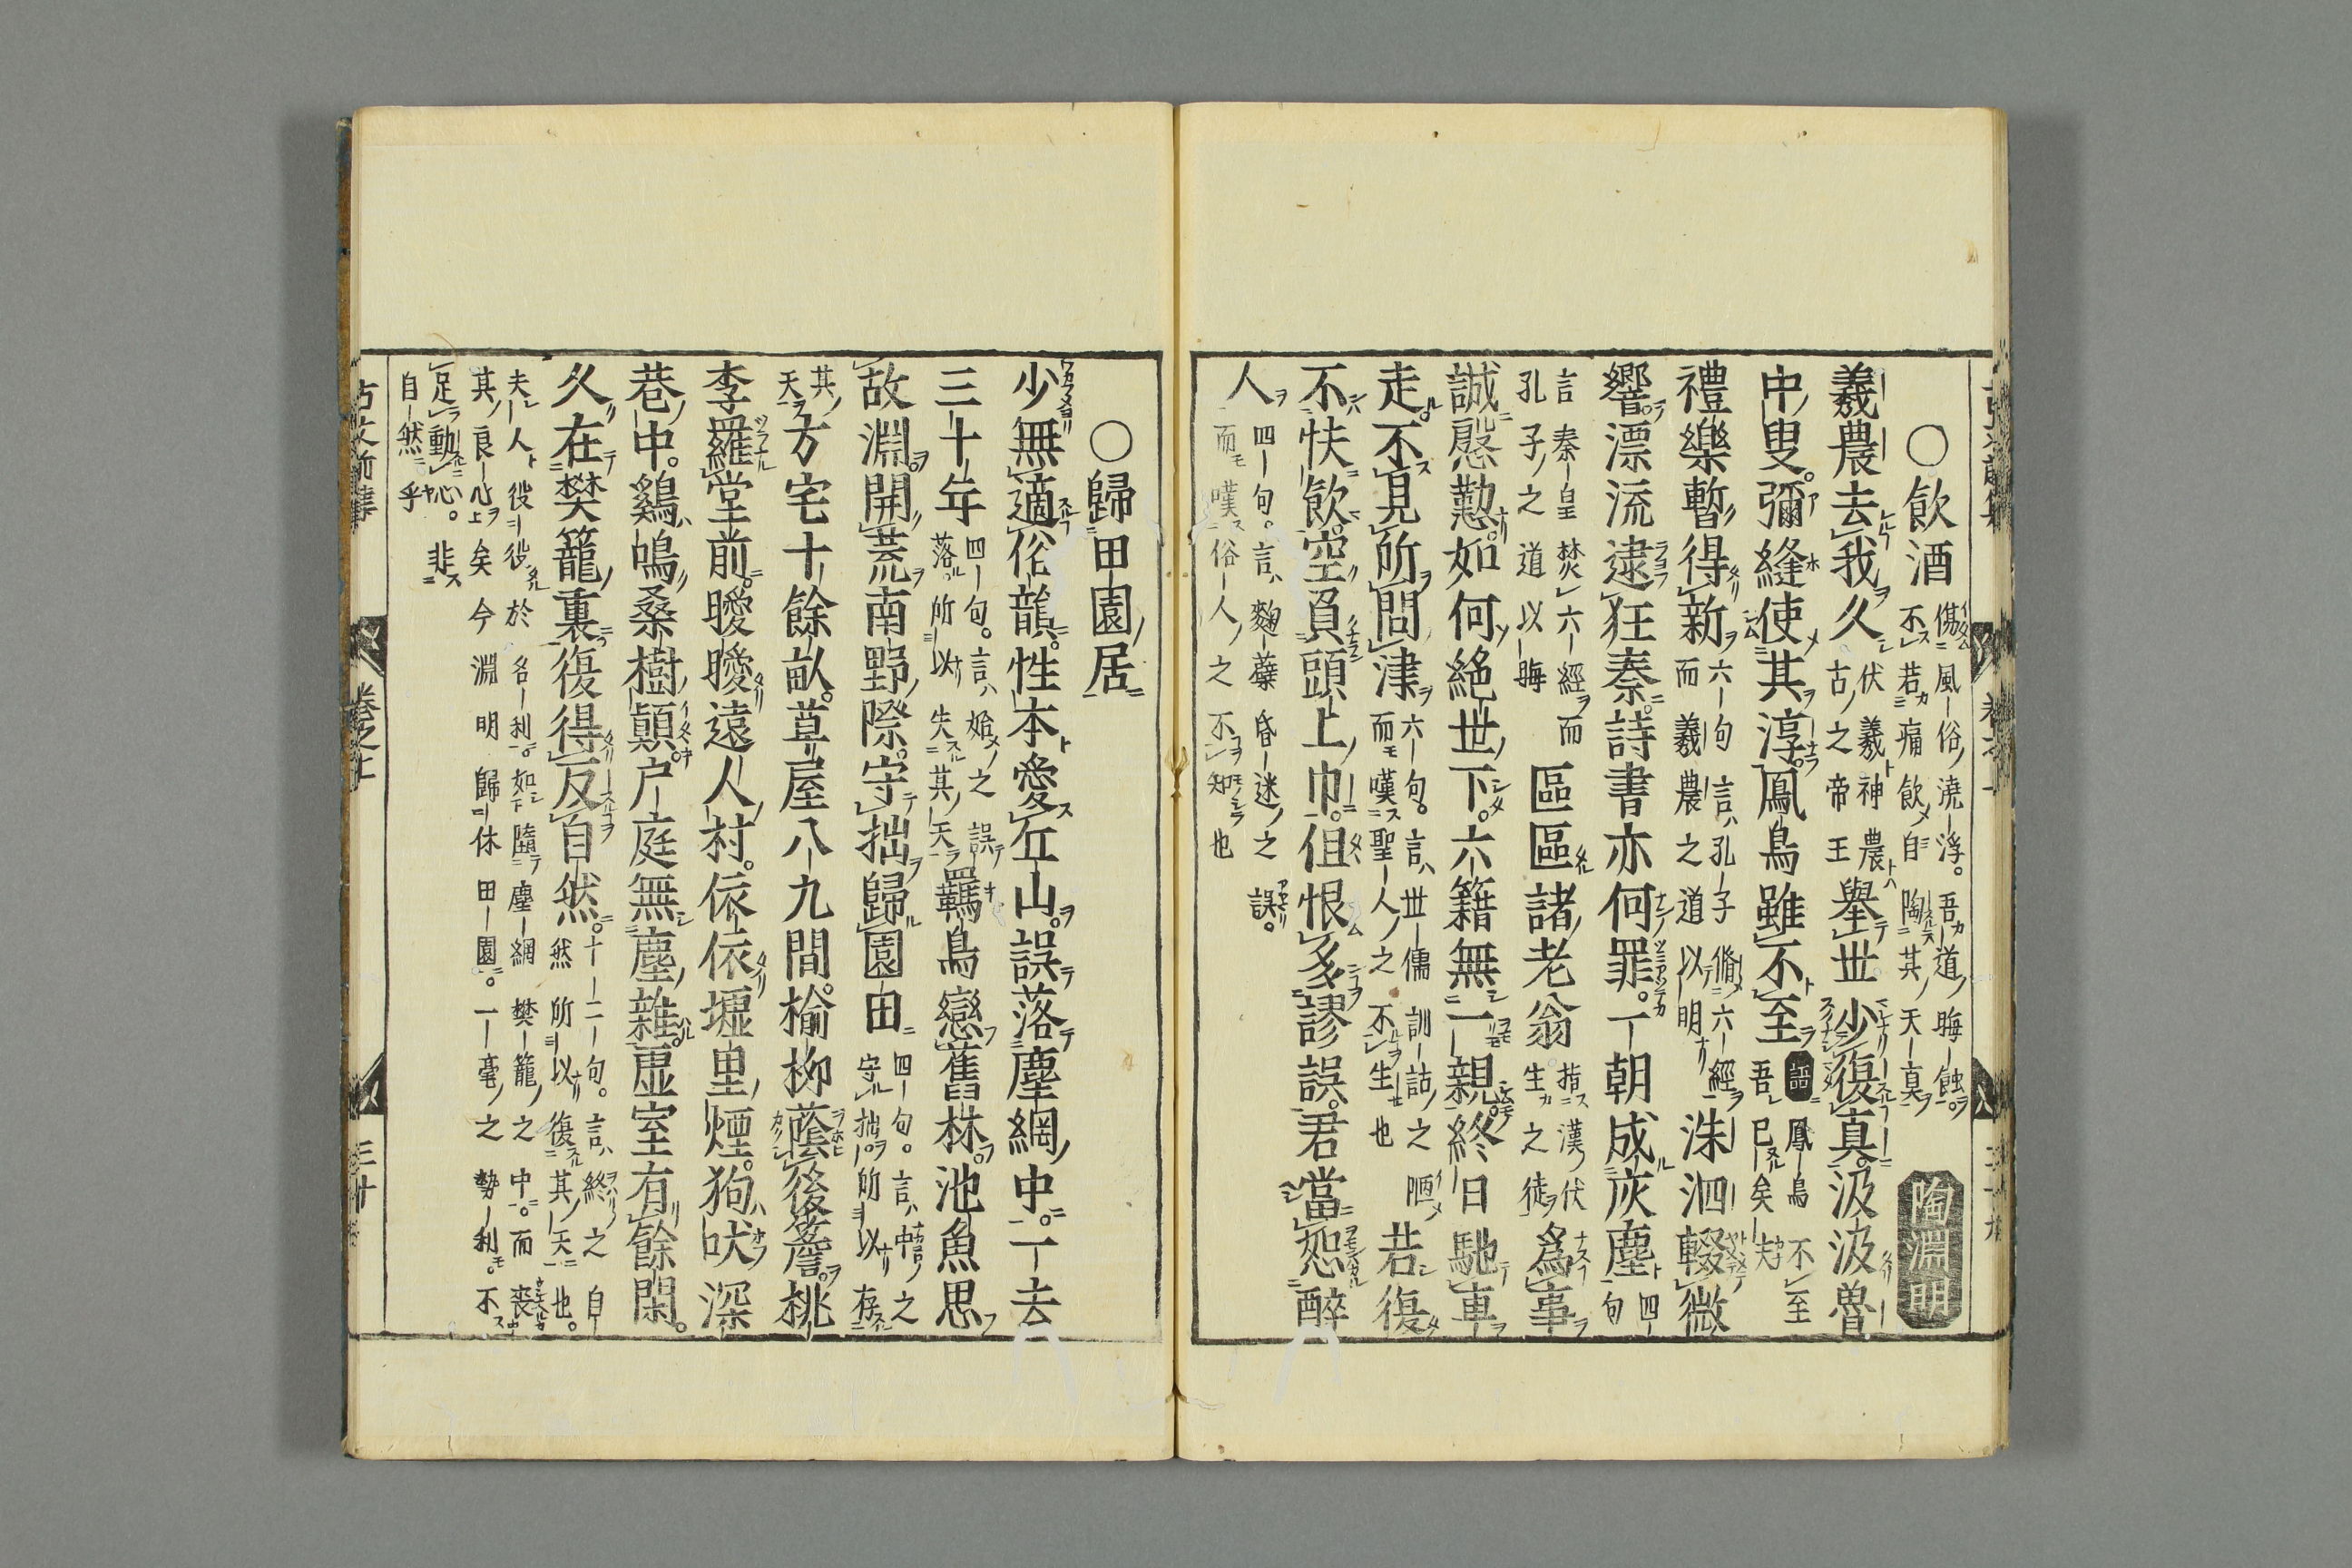 ○飲酒 傷風俗澆浮。吾道晦蝕。不若痛飲自陶其天真 陶淵明
羲農去我久 伏羲神農古之帝王 舉世少復真。汲汲魯
中叟。彌縫使其淳。鳳鳥雖不至 語 鳳鳥不至吾已矣夫
禮樂暫得新 六句言孔子脩六經而羲農之道以明 洙泗輟微
響。漂流逮狂秦。詩書亦何罪。一朝成灰塵 四句
言秦皇焚六經而孔子之道以晦 區區諸老翁 指漢伏生之徒 爲事
誠慇懃。如何絕世下。六籍無一親。終日馳車
走。不見所問津 六句。言世儒訓詁之陋而嘆聖人之不生也 若復
不快飲。空負頭上巾。但恨多謬誤。君當恕醉
人 四句。言麴蘖昏迷之誤。而嘆俗人之不知也
○歸田園居
少無適俗韻。性本愛丘山。誤落塵網中。一去
三十年 四句。言始之誤落所以失其天 羈鳥戀舊林。池魚思
故淵。開荒南野際。守拙歸園田 四句。言中之存守拙所以
其天 方宅十餘畝。草屋八九間。榆柳蔭後簷。桃
李羅堂前。曖曖遠人村。依依墟里煙。狗吠深
巷中。鷄鳴桑樹顛。户庭無塵雜。虛室有餘閑。
久在樊籠裏。復得反自然。 十二句。言終之自然所以復其天也。
夫人役役於名利。如墮塵網樊籠之中。而喪
其良心矣今淵明歸休田園。一毫之勢利。不
足動心。非
自然乎
古文前集 卷之上 三十